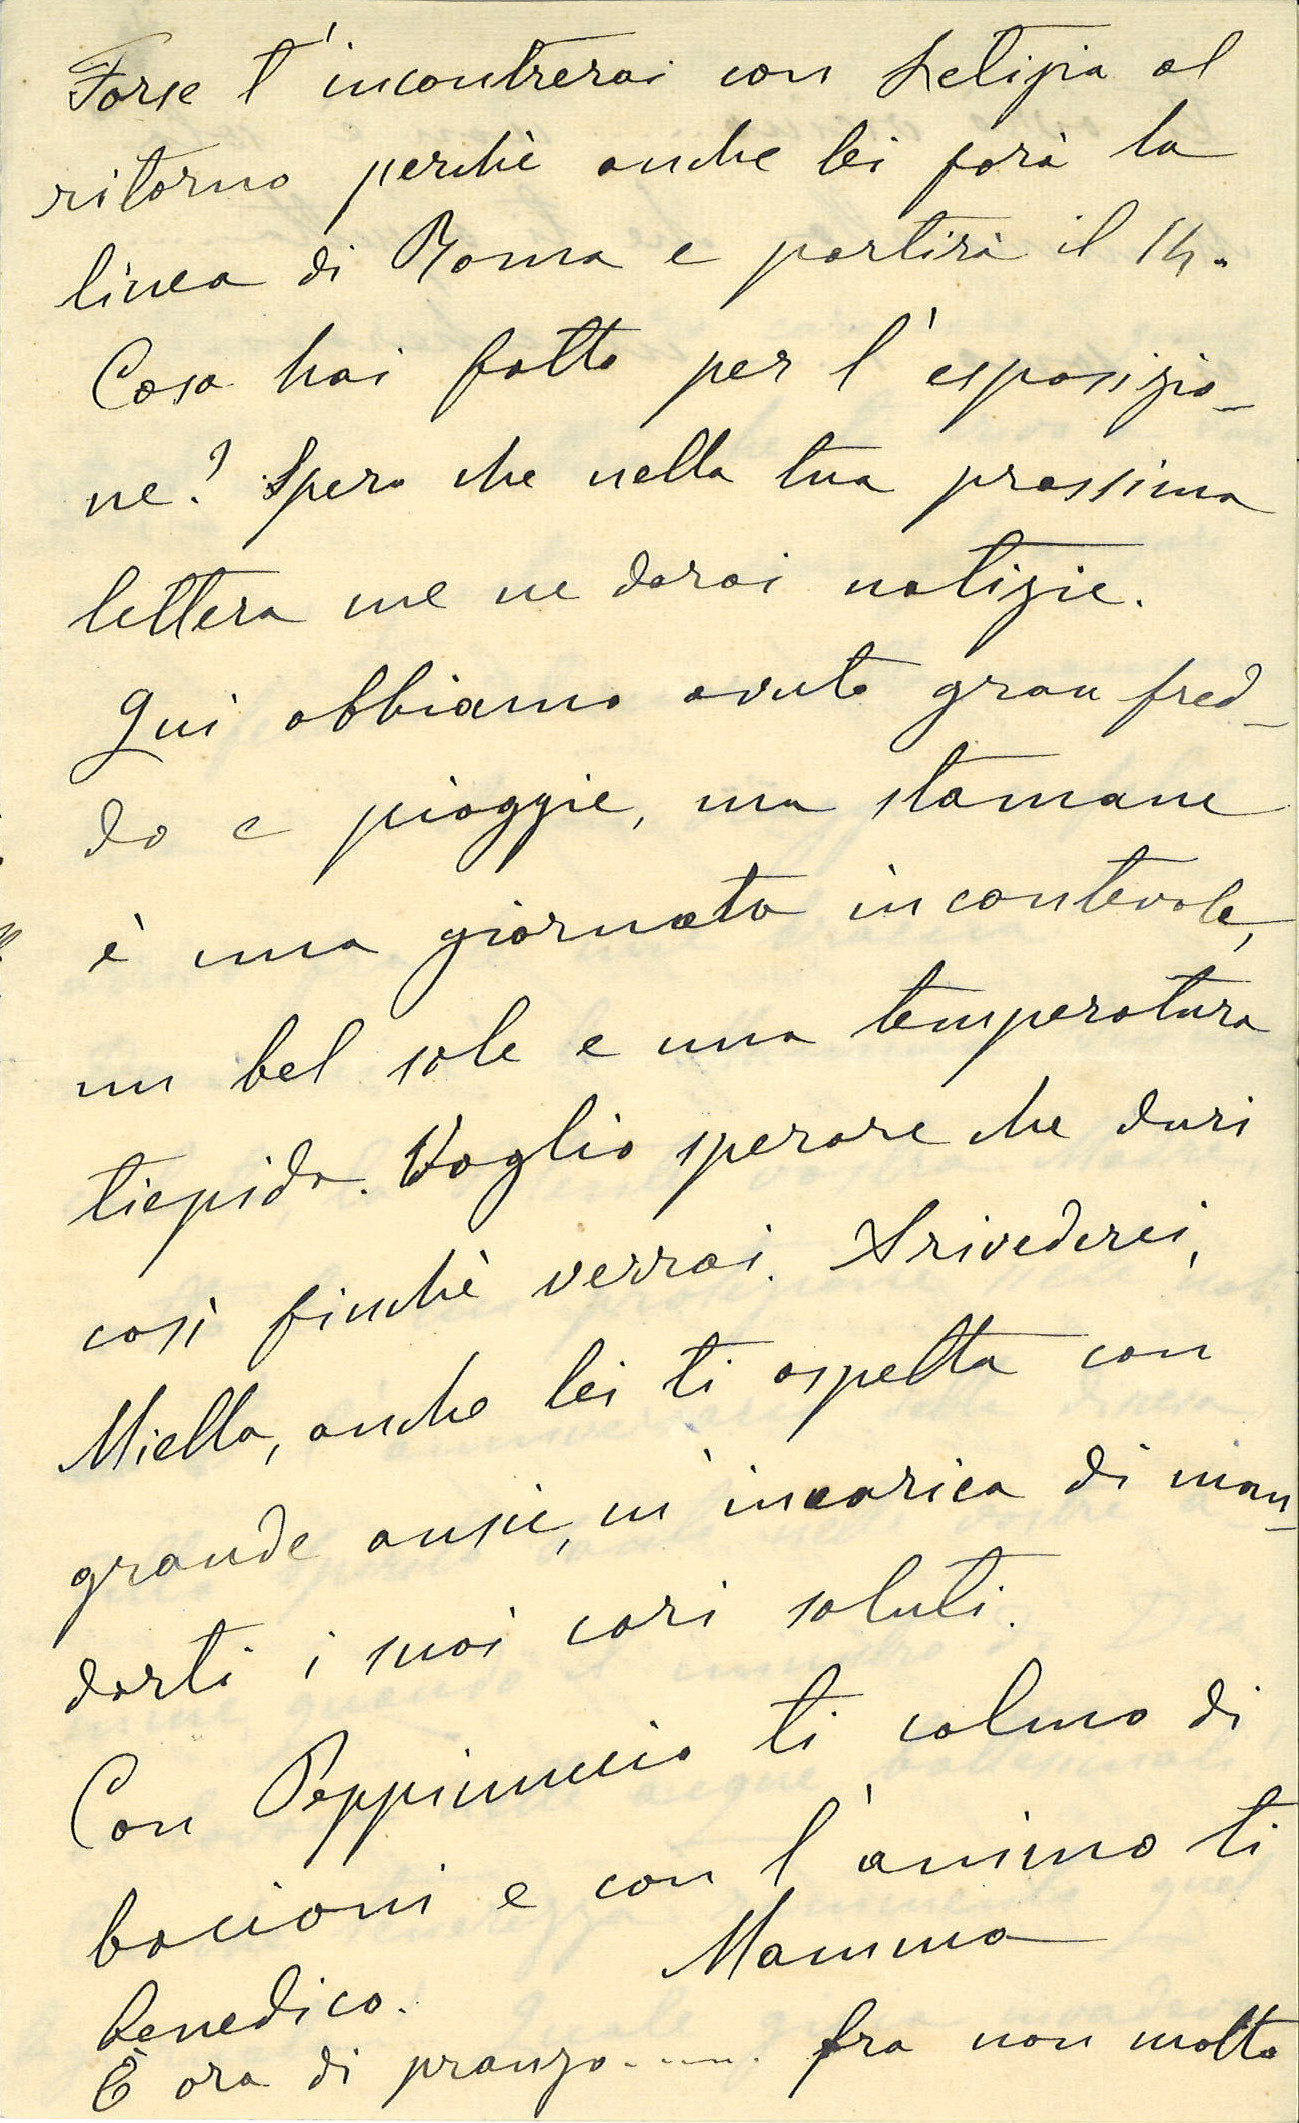 Forse t'incontrerai con Letizia al
ritorno perchè anche lei farà la
linea di Roma e partirà il 14.
Cosa hai fatto per l'esposizio-
ne? Spero che nella tua prossima
lettera me ne darai notizie.
Qui abbiamo avuto gran fred-
do e pioggie, ma stamane
è una giornata incantevole,
un bel sole e una temperatura
tiepida. Voglio sperare che duri
così finchè verrai. Arivederci,
Miella, anche lei ti aspetta con
grande ansie, m'incarica di man-
darti i suoi cari saluti.
Con Peppinuccio ti colmo di
bacioni e con l'animo ti
benedico. Mamma
È ora di pranzo...... fra non molto